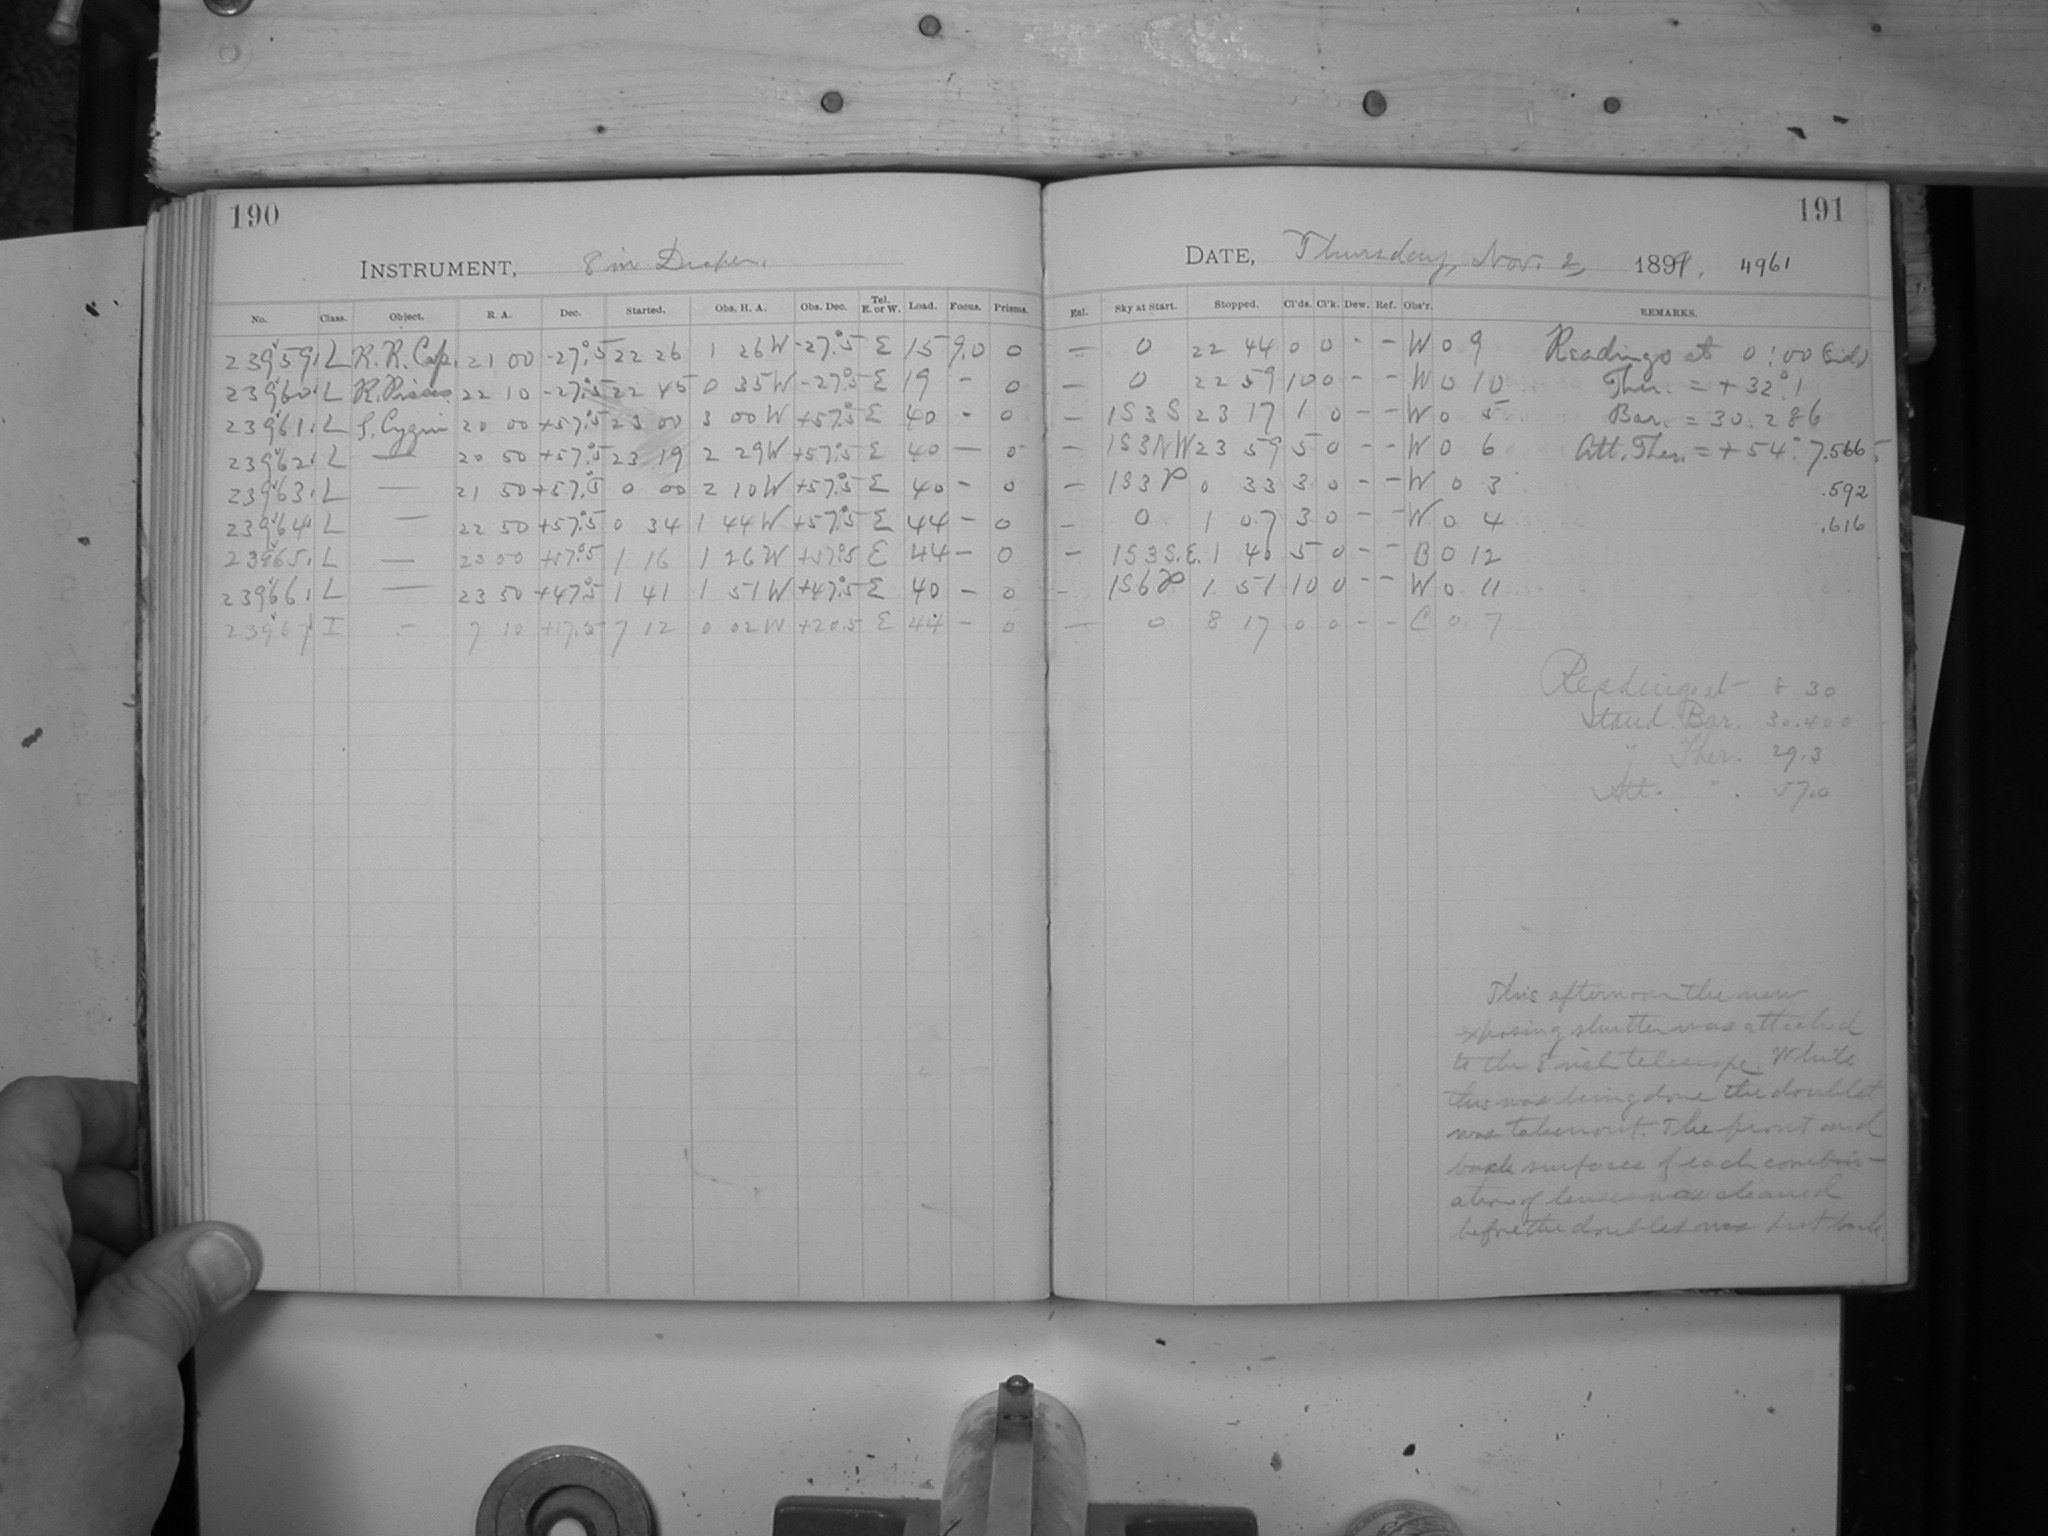 190
INSTRUMENT, 8 in Draper.
No. Class. Object. R. A. Dec. Started. Obs. H. A. Obs. Dec. Tel. E. or W. Load. Focus. Prisms.
23959. L R. R. Cap. 21 00 -27°.5 22 26 1 26 W -27°.5 E 15 9.0 0
23960. L R. Pisces 22 10 -27°.5 22 45 0 35 W -27°.5 E 19 - 0
23961. L S. Cygni 20 00 +57°.5 23 00 3 00 W +57°.5 E 40 - 0
23962. L — 20 50 +57°.5 23 19 2 29 W +57°.5 E 40 — 0
23963. L — 21 50 +57°.5 0 00 2 10 W +57°.5 E 40 - 0
23964. L — 22 50 +57°.5 0 34 1 44 W +57°.5 E 44 - 0
23965. L — 23 50 +57°.5 1 16 1 26 W +57°.5 E 44 — 0
23966. L — 23 50 +47°.5 1 41 1 51 W +47°.5 E 40 - 0
23967 I - 7 10 +17.5 7 12 0 02 W +20.5 E 44 - 0
191
DATE, Thursday, Nov. 2, 1899. 4961
Enl. Sky at Start. Stopped. Cl'ds. Cl'k. Dew. Ref. Obs'r. REMARKS.
— 0 22 44 0 0 - - W 0 9 Readings at 0:00 (sid)
— 0 22 59 10 0 - - W 0 10 Ther. = + 32°.1
— 1S3 S 23 17 1 0 - - W 0 5 Bar. = 30.286
— 1S3 NW 23 59 5 0 - - W 0 6 Att. Ther. = + 54°.7 .566
— 1S3 0 33 3 0 - - W 0 3 .592
- 0 1 07 3 0 - - W 0 4 .616
— 1S3 S.E. 1 40 5 0 - - B 0 12
- 1S6 1 51 10 0 - - W 0 11
— 0 8 17 0 0 - - C 0 7
Readings at 8 30
Stand. Bar. 30.400
" Ther. 29.3
Att. " 57.0
This afternoon the new
exposing shutter was attached
to the 8 inch telescope. While
this was being done the doublet
was taken out. The front and
back surfaces of each combin-
ation of lenses was cleaned
before the doublet was put back